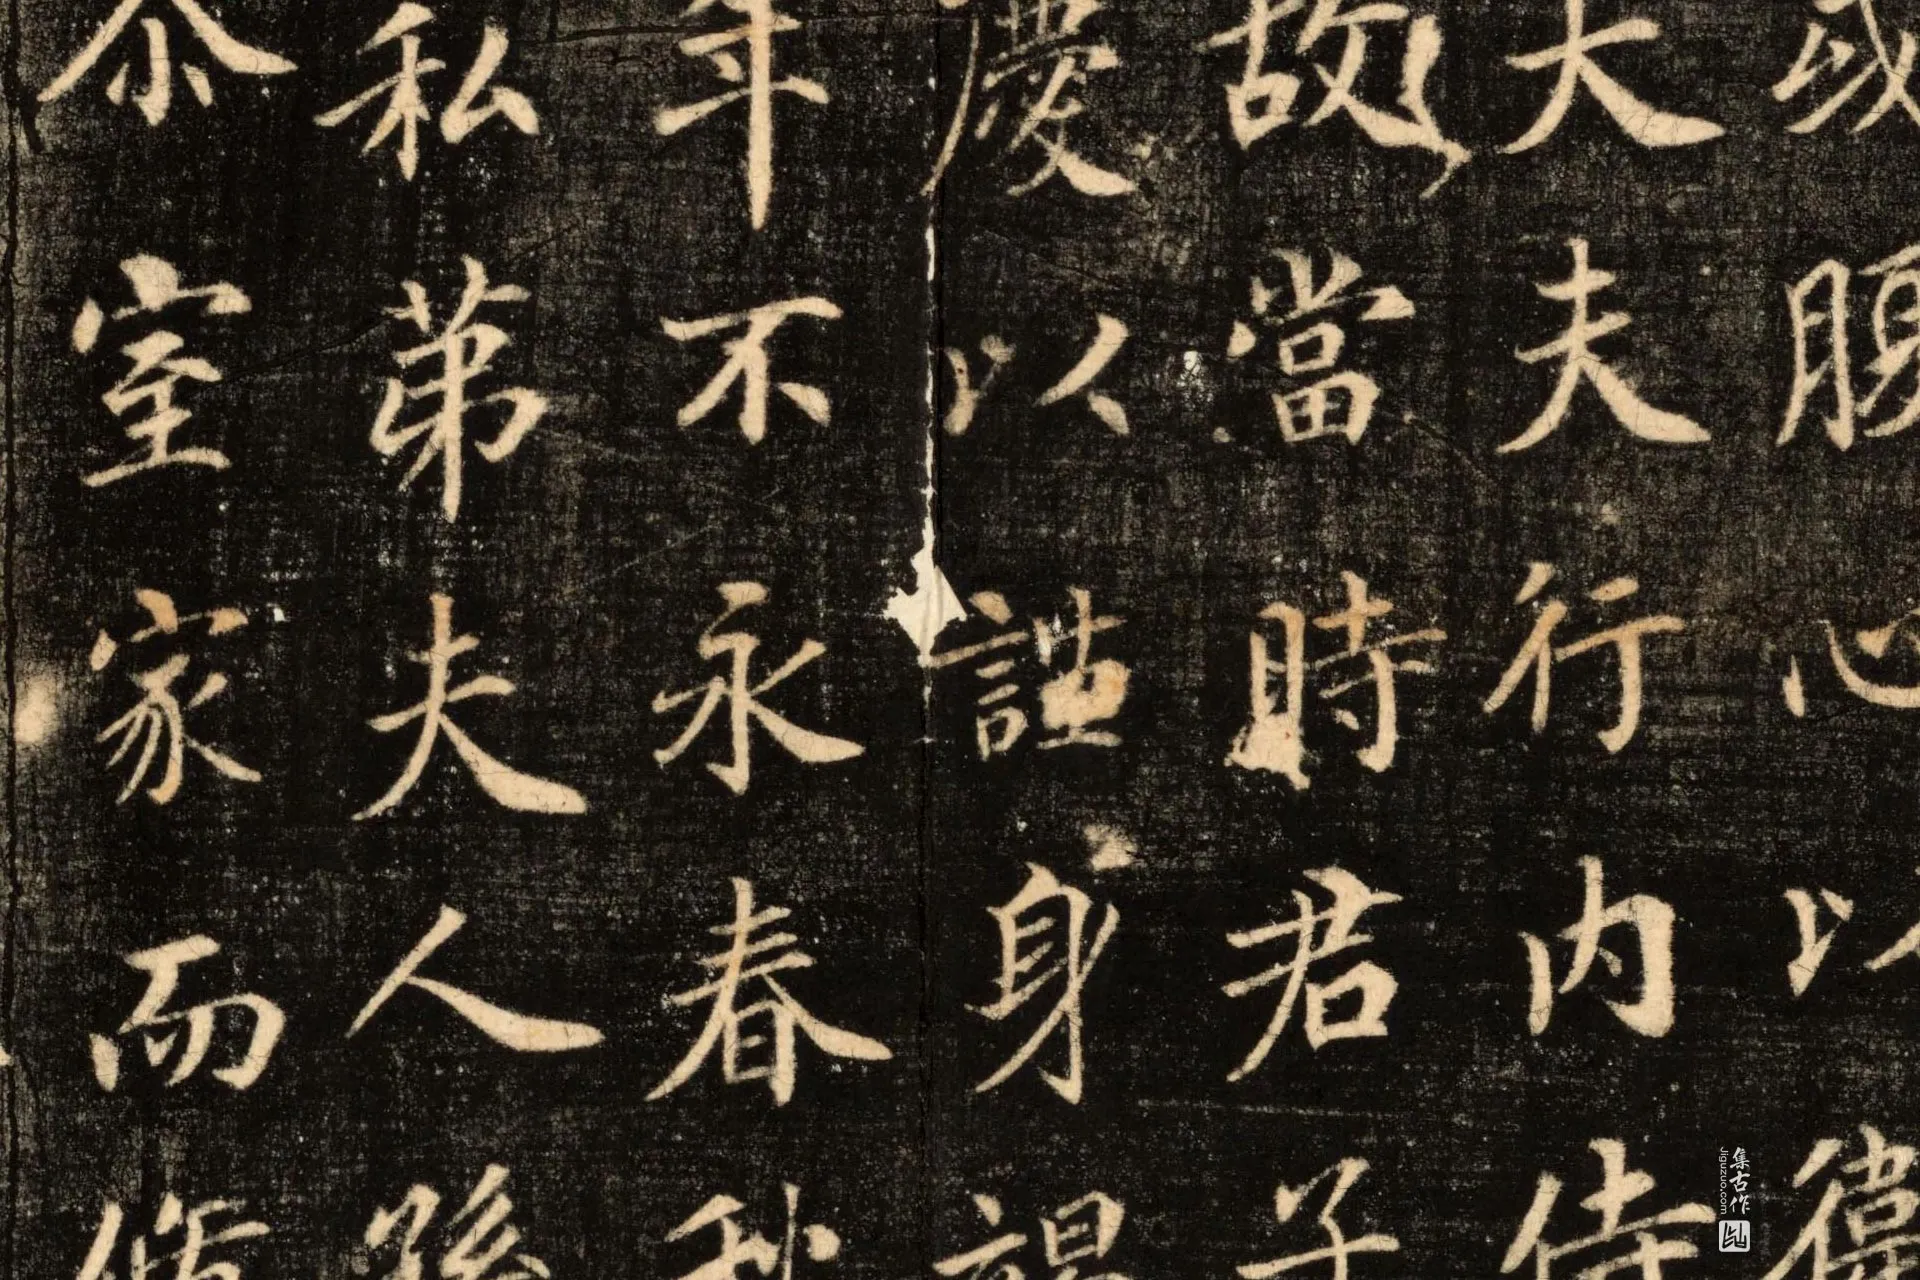 或腹心以
大夫行内侍
故當時君子
慶以謹身
年不永春秋
私第夫人孫
室家而
集古作
Jiguzuo.com